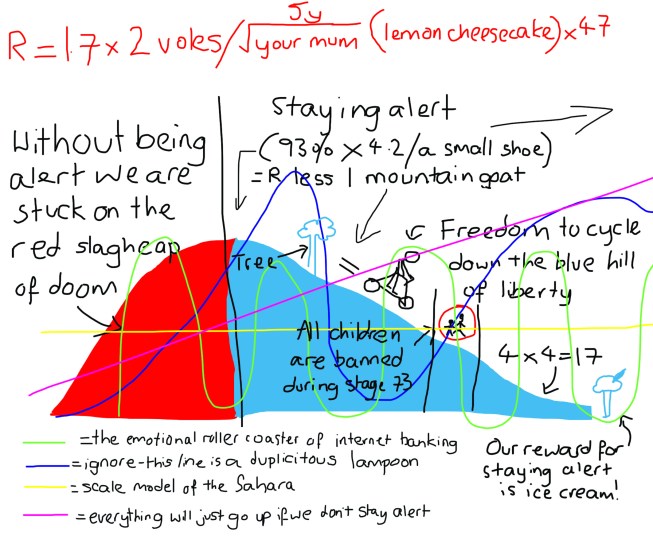 5y
R = 1.7 × 2 voles/√your mum (lemon cheesecake) × 47
Staying alert
(93% × 4.2/a small shoe)
= R less 1 mountain goat
Without being
alert we are
stuck on the
red slagheap
of doom
Tree
Freedom to cycle
down the blue hill
of liberty
All children
are banned
during stage 73
4 × 4 = 17
Our reward for
staying alert
is ice cream!
= the emotional roller coaster of internet banking
= ignore - this line is a duplicitous lampoon
= scale model of the Sahara
= everything will just go up if we don't stay alert